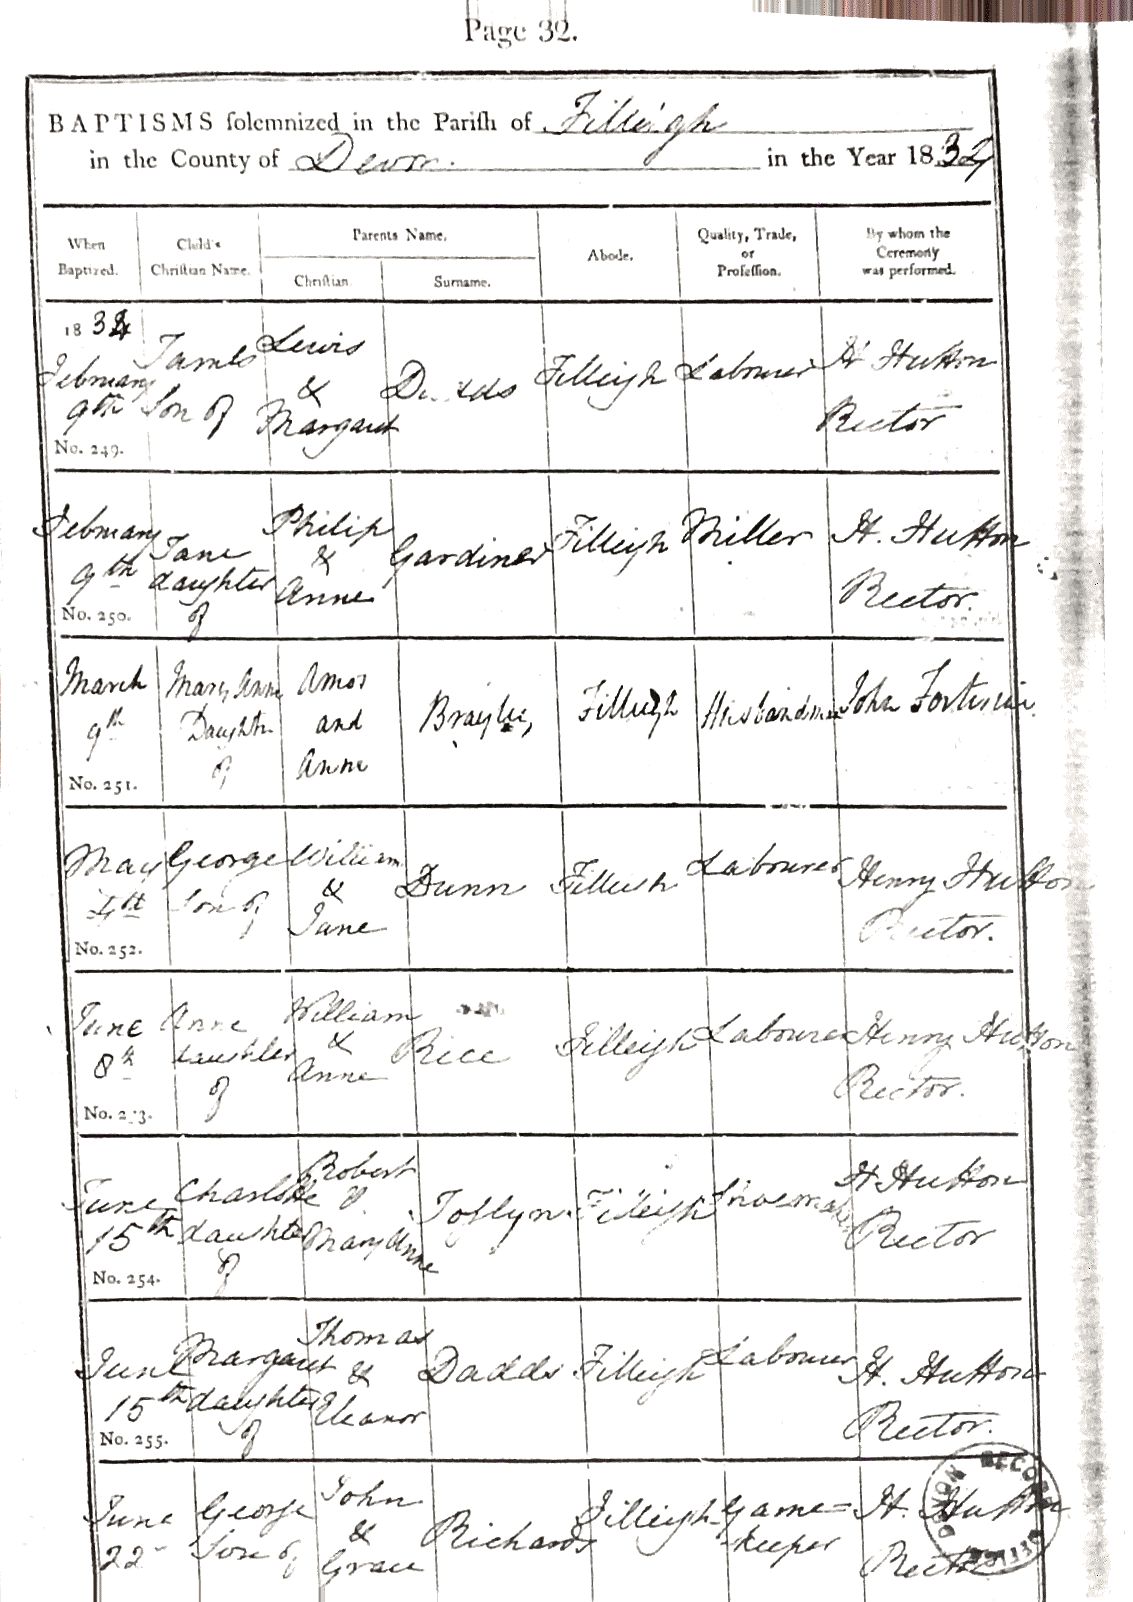 Page 32.
BAPTISMS solemnized in the Parish of Filleigh
in the County of Devon. in the Year 1834
When Baptized.
Child's Christian Name.
Parents Name.
Christian.
Surname.
Abode.
Quality, Trade, or Profession.
By whom the Ceremony was performed.
1834
February 9th
No. 249.
James Son of
Lewis & Margaret
Filleigh
Labourer
H Hutton Rector
February 9th
No. 250.
Jane daughter of
Philip & Anne
Gardiner
Filleigh
Miller
H. Hutton Rector.
March 9th
No. 251.
Mary Anne Daughter of
Amos and Anne
Brayley
Filleigh
Husbandman
John Fortescue
May 4th
No. 252.
George Son of
William & Jane
Dunn
Filleigh
Labourer
Henry Hutton Rector.
June 8th
No. 253.
Anne daughter of
William & Anne
Rice
Filleigh
Labourer
Henry Hutton Rector.
June 15th
No. 254.
Charlotte daughter of
Robert & Mary Anne
Joslyn
Filleigh
Shoemaker
H Hutton Rector
June 15th
No. 255.
Margaret daughter of
Thomas & Eleanor
Dadds
Filleigh
Labourer
H. Hutton Rector.
June 22
George Son of
John & Grace
Richards
Filleigh
Game=keeper
H. Hutton Rector
DEVON RECORD OFFICE